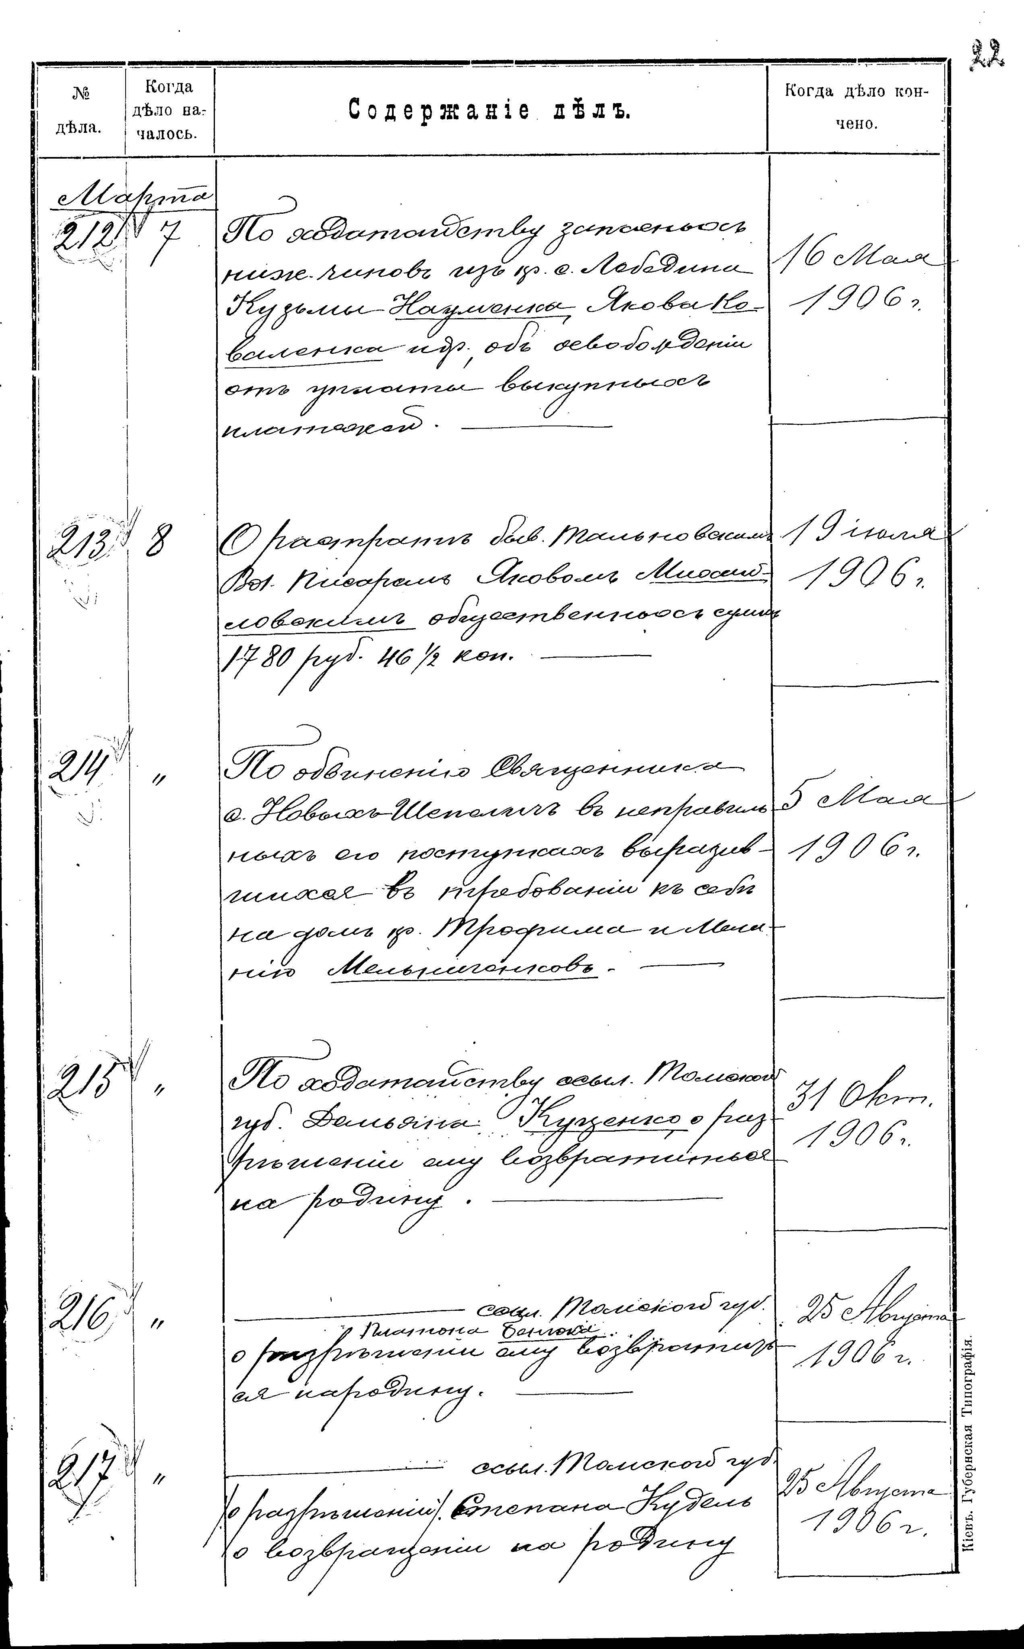 22
№ дѣла.
Когда дѣло началось.
Содержаніе дѣлъ.
Когда дѣло кончено.
Марта
212 7
По ходатайству запасныхъ
ниж. чиновъ изъ кр. с. Лебедина
Кузьмы Науменка, Якова Ко-
валенка и др. объ освобожденіи
отъ уплаты выкупныхъ
платежей.
16 Мая
1906 г.
213 8
О растратѣ быв. Тальновскимъ
Вол. Писаремъ Яковомъ Михай-
ловскимъ общественныхъ суммъ
1780 руб. 46 1/2 коп.
19 іюля
1906 г.
214 "
По обвиненію Священника
с. Новыхъ-Шепеличъ въ неправиль
ныхъ его поступкахъ выразив-
шихся въ требованіи къ себѣ
на домъ кр. Трофима и Мела-
нію Мельниченковъ.
5 Мая
1906 г.
215 "
По ходатайству ссыл. Томской
губ. Демьяна Куценко о раз-
рѣшеніи ему возвратиться
на родину.
31 Окт.
1906 г.
216 "
ссыл. Томской губ.
Платона
о разрѣшеніи ему возвратить
ся народину.
25 Августа
1906 г.
217 "
ссыл. Томской губ.
/о разрѣшеніи/. Степана Кудель
/о возвращеніи на родину
25 Августа
1906 г.
Кіевъ. Губернская Типографія.